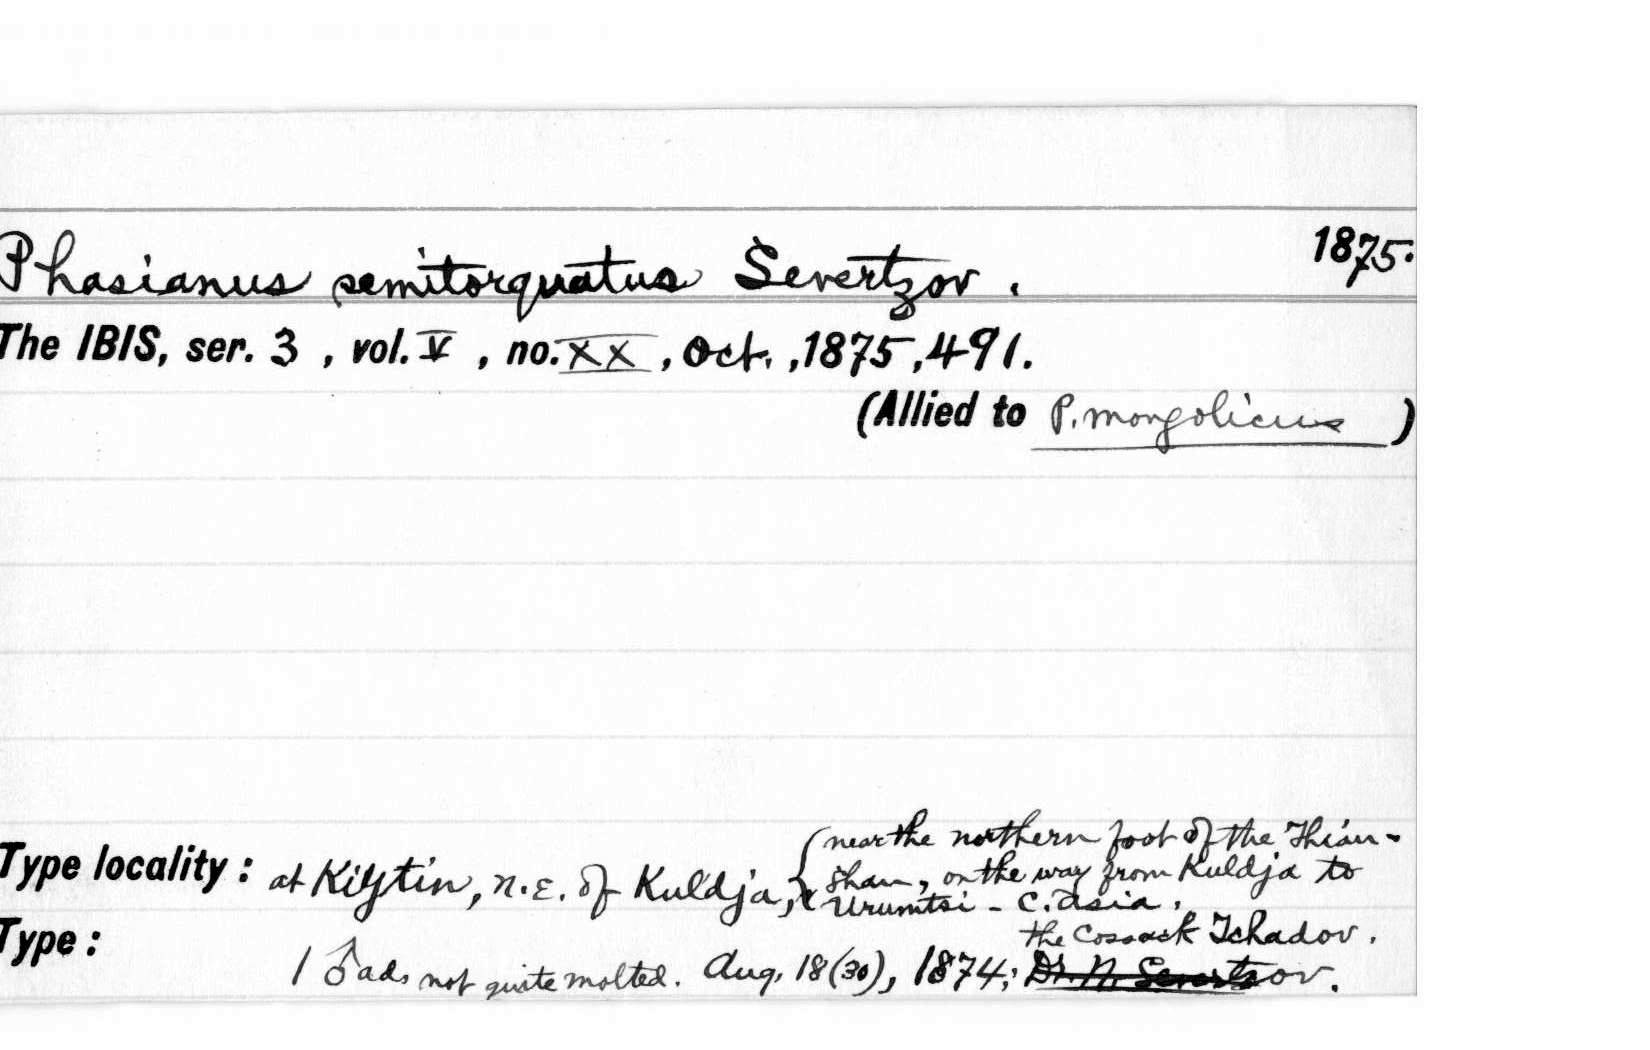 Phasianus semitorquatus Severtzov. 1875.
The IBIS, ser. 3, vol. V, no. XX, Oct., 1875, 491.
(Allied to P. mongolicus)
Type locality: at Kiytin, n.E. of Kuldja, { near the northern foot of the Thian-
Shan, on the way from Kuldja to
Urumtsi - C. Asia.
Type: the Cossack Tchadov.
1 ♂ ad. not quite molted. Aug. 18 (30), 1874; Dr. N. Severtzov.